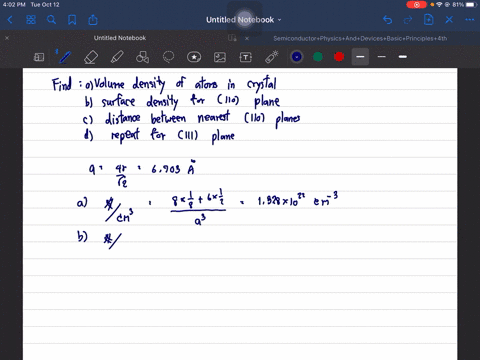 4:02 PM Tue Oct 12
81%
Untitled Notebook
Untitled Notebook
Semiconductor+Physics+And+Devices+Basic+Principles+4th
Find : a) Volume density of atoms in crystal
b) surface density for (110) plane
c) distance between nearest (110) planes
d) repeat for (111) plane
a = 4r/√2 = 6.903 Å
a) #/cm³ = (8 × 1/8 + 6 × 1/2)/a³ = 1.328 × 10²² cm⁻³
b) #/